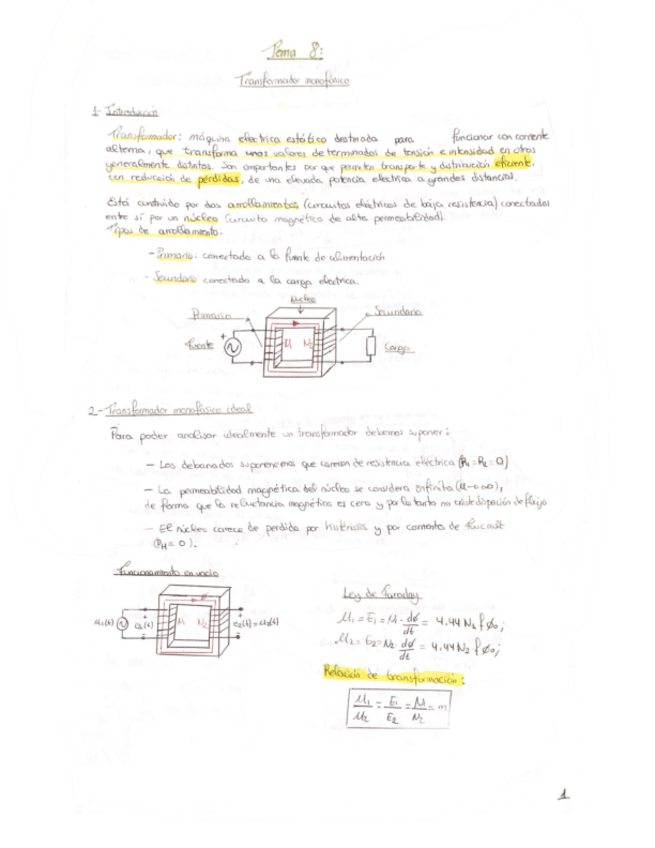 Tema 8:
Transformador monofásico
1- Introducción
Transformador: máquina eléctrica estática destinada para funcionar con corriente
alterna, que transforma unos valores determinados de tensión e intensidad en otros
generalmente distintos. Son importantes por que permiten transporte y distribución eficiente,
con reducción de pérdidas, de una elevada potencia eléctrica a grandes distancias.
Está contruido por dos arrollamientos (circuitos eléctricos de baja resistencia) conectados
entre sí por un núcleo (circuito magnético de alta permeabilidad).
Tipos de arrollamiento:
- Primario: conectado a la fuente de alimentación
- Secundario conectado a la carga eléctrica.
Núcleo
Primario
Secundario
Fuente
+
N1
N2
Carga
2- Transformador monofásico ideal
Para poder analizar idealmente un transformador debemos suponer:
- Los debanados suponenemos que carecen de resistencia eléctrica (R1=R2=0)
- La permeabilidad magnética del núcleo se considera infinita (μ→∞),
de forma que la reluctancia magnética es cero y por lo tanto no existe dispación de flujo.
- El núcleo carece de perdida por histéresis y por corrientes de Foucault
(PH=0).
Funcionamiento en vacío
Ley de Faraday
μ1(t)
e1(t)
N1
N2
e2(t)=μ2(t)
μ1=E1=N1·dφ/dt=4.44N2fφ0;
μ2=E2=N2·dφ/dt=4.44N2fφ0;
Relación de transformación:
μ1/μ2=E1/E2=N1/N2=m
1